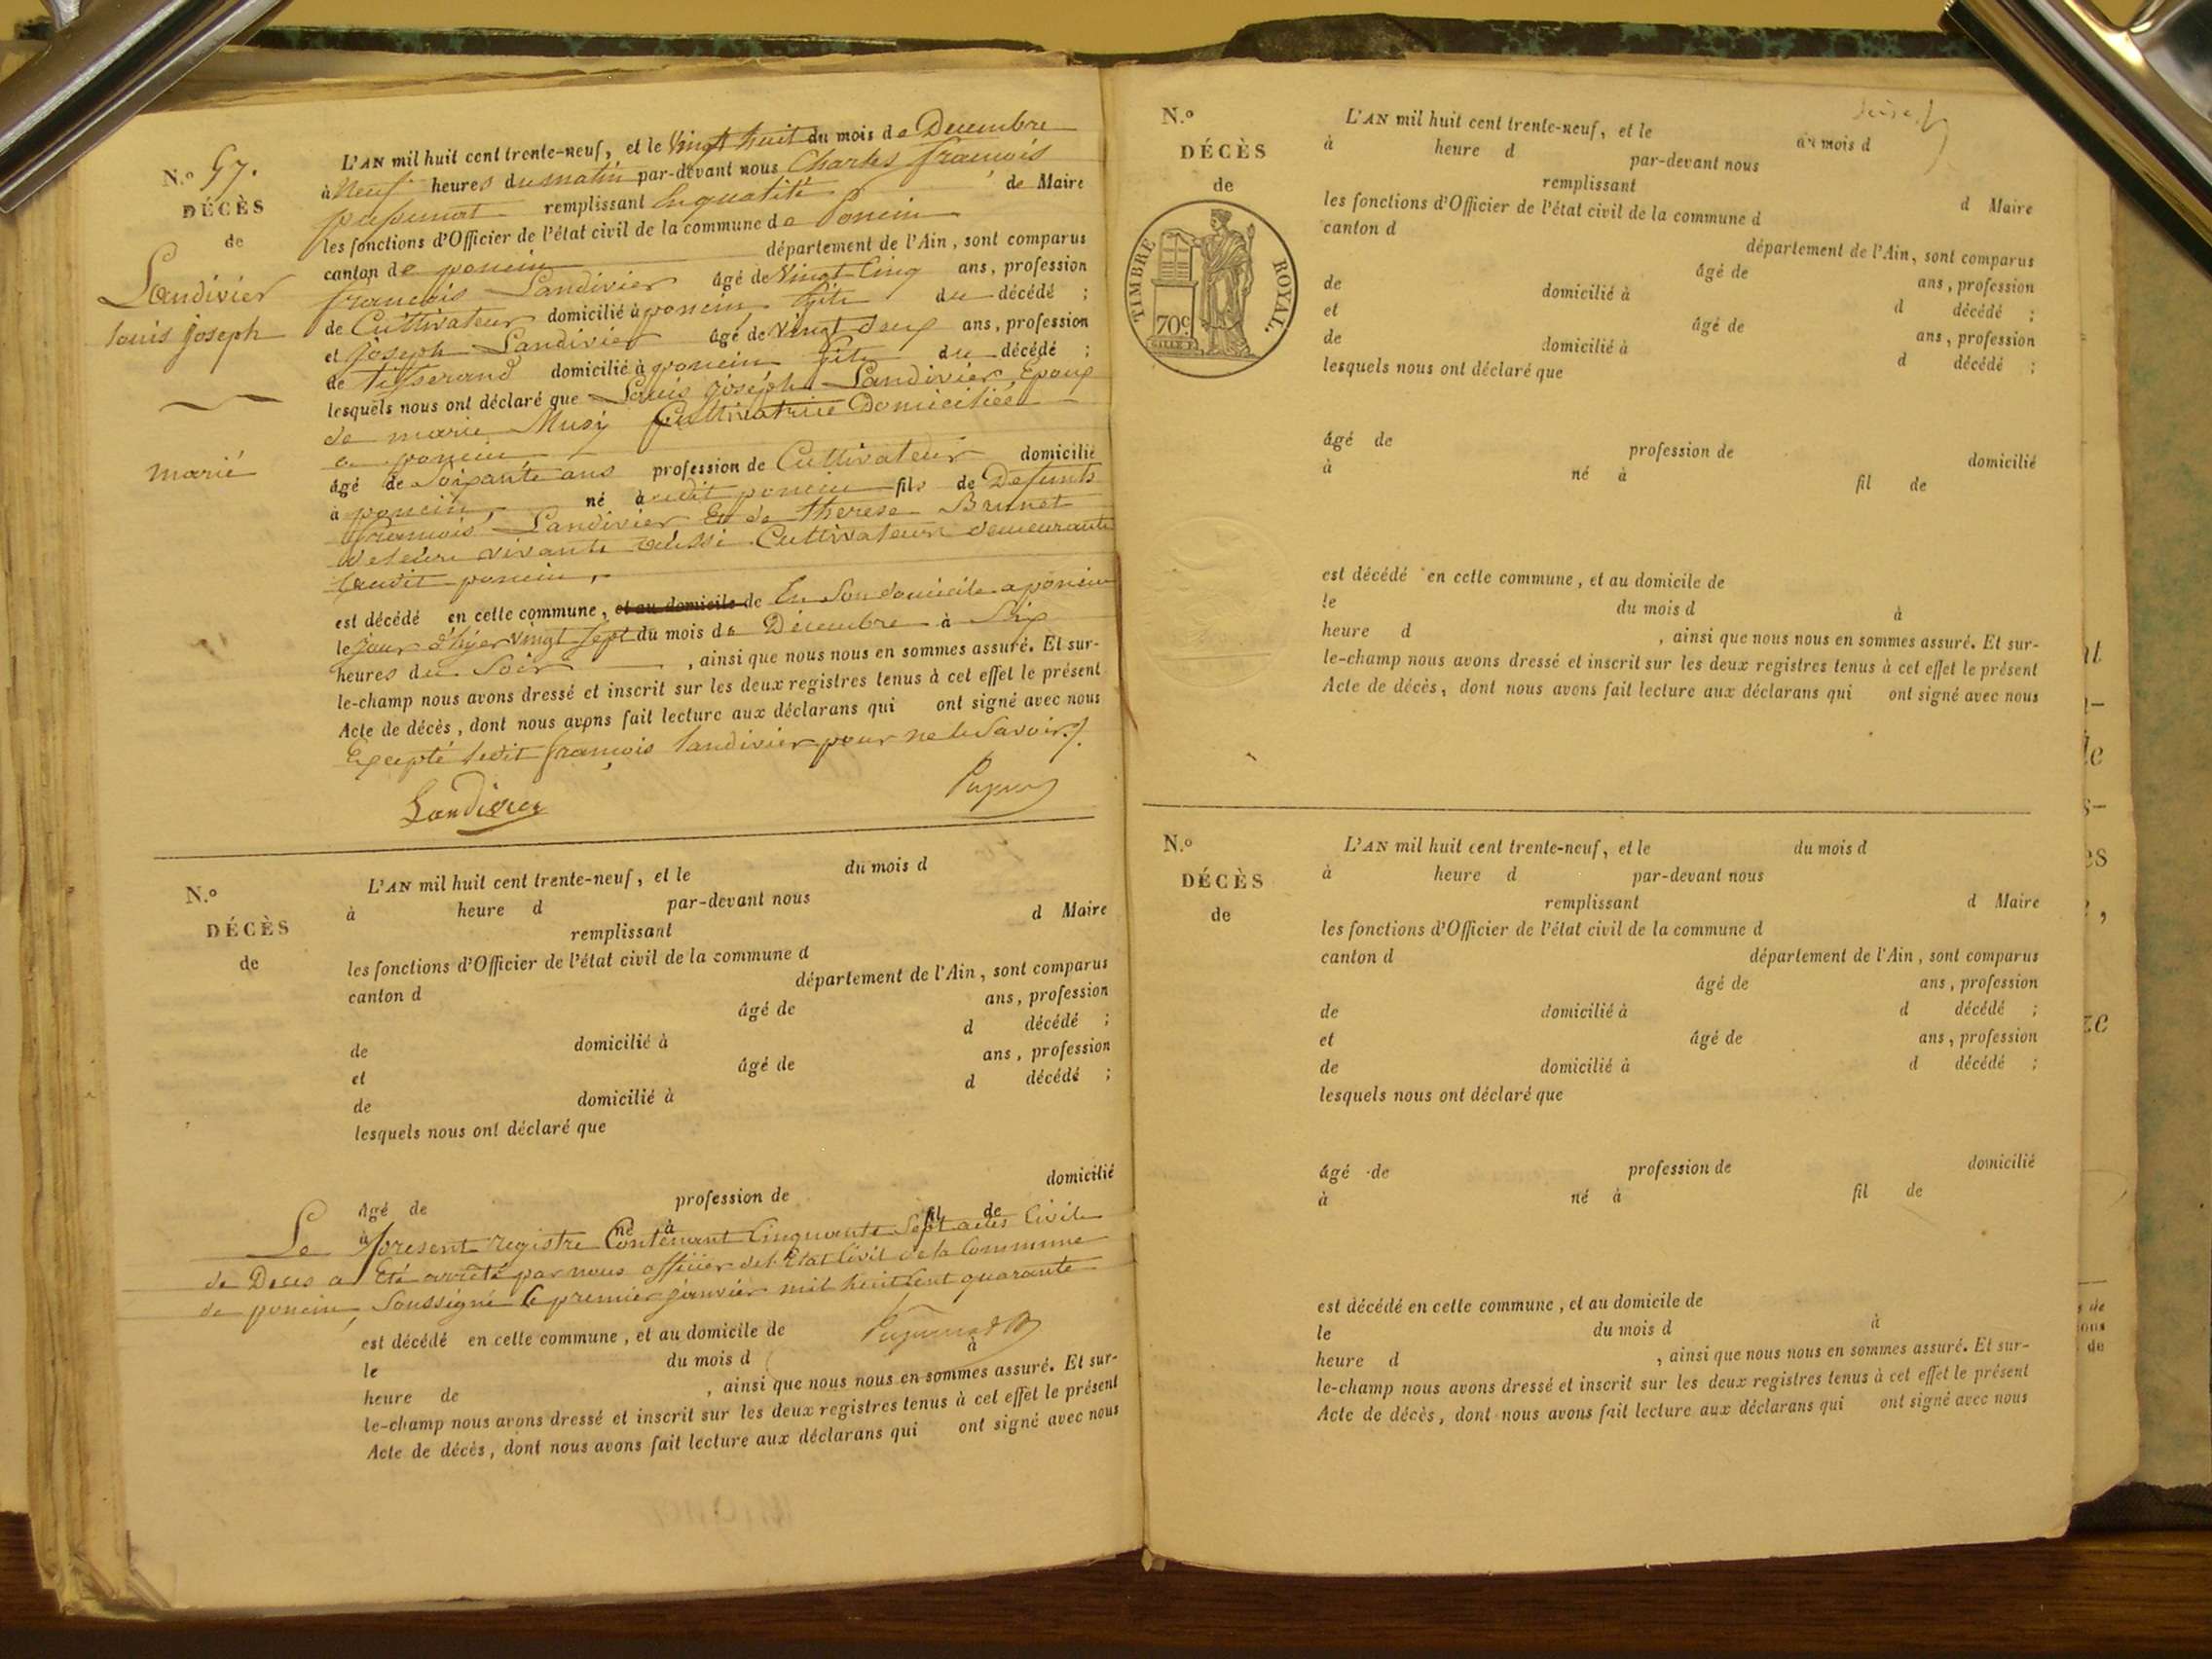 N.º 57.
DÉCÈS
de
Landivier
louis joseph
marié
L'AN mil huit cent trente-neuf, et le Vingt huit du mois de Decembre
à Neuf heures du matin par-devant nous Charles françois
remplissant En qualité de Maire
les fonctions d'Officier de l'état civil de la commune de Poncin
canton de poncin département de l'Ain, sont comparus
françois Landivier âgé de Vingt Cinq ans, profession
de Cultivateur domicilié à poncin, fils du décédé ;
et joseph Landivier âgé de vingt deux ans, profession
de tisserand domicilié à poncin fils du décédé ;
lesquels nous ont déclaré que Louis joseph Landivier, Epoux
de marie Musy Cultivatrice Domiciliée
a poncin
âgé de Soixante ans profession de Cultivateur domicilié
à poncin, né audit poncin fils de Defunts
françois Landivier Et de therese Brunet
de leur vivants aussi Cultivateurs demeurants
audit poncin,
est décédé en cette commune, et au domicile de En Son domicile a poncin
le jour d'hyer vingt sept du mois de Décembre à Six
heures du Soir , ainsi que nous nous en sommes assuré. Et sur-
le-champ nous avons dressé et inscrit sur les deux registres tenus à cet effet le présent
Acte de décès, dont nous avons fait lecture aux déclarans qui ont signé avec nous
Excepté ledit françois landivier pour ne le Savoir ./.
Landivier
N.º
DÉCÈS
de
L'AN mil huit cent trente-neuf, et le du mois d
à heure d par-devant nous
remplissant d Maire
les fonctions d'Officier de l'état civil de la commune d
canton d département de l'Ain, sont comparus
âgé de ans, profession
de domicilié à d décédé ;
et âgé de ans, profession
de domicilié à d décédé ;
lesquels nous ont déclaré que
âgé de profession de domicilié
à né à fil de
Le present registre Contenant Cinquante Sept actes Civils
de Deces a Eté arrêté par nous officier de l'Etat Civil de la Commune
de poncin, Soussigné le premier janvier mil huit Cent quarante
est décédé en cette commune, et au domicile de
le du mois d à
heure de , ainsi que nous nous en sommes assuré. Et sur-
le-champ nous avons dressé et inscrit sur les deux registres tenus à cet effet le présent
Acte de décès, dont nous avons fait lecture aux déclarans qui ont signé avec nous
N.º
DÉCÈS
de
TIMBRE ROYAL.
70c
L'AN mil huit cent trente-neuf, et le du mois d
à heure d par-devant nous
remplissant d Maire
les fonctions d'Officier de l'état civil de la commune d
canton d département de l'Ain, sont comparus
âgé de ans, profession
de domicilié à d décédé ;
et âgé de ans, profession
de domicilié à d décédé ;
lesquels nous ont déclaré que
âgé de profession de domicilié
à né à fil de
est décédé en cette commune, et au domicile de
le du mois d à
heure d , ainsi que nous nous en sommes assuré. Et sur-
le-champ nous avons dressé et inscrit sur les deux registres tenus à cet effet le présent
Acte de décès, dont nous avons fait lecture aux déclarans qui ont signé avec nous
N.º
DÉCÈS
de
L'AN mil huit cent trente-neuf, et le du mois d
à heure d par-devant nous
remplissant d Maire
les fonctions d'Officier de l'état civil de la commune d
canton d département de l'Ain, sont comparus
âgé de ans, profession
de domicilié à d décédé ;
et âgé de ans, profession
de domicilié à d décédé ;
lesquels nous ont déclaré que
âgé de profession de domicilié
à né à fil de
est décédé en cette commune, et au domicile de
le du mois d à
heure d , ainsi que nous nous en sommes assuré. Et sur-
le-champ nous avons dressé et inscrit sur les deux registres tenus à cet effet le présent
Acte de décès, dont nous avons fait lecture aux déclarans qui ont signé avec nous